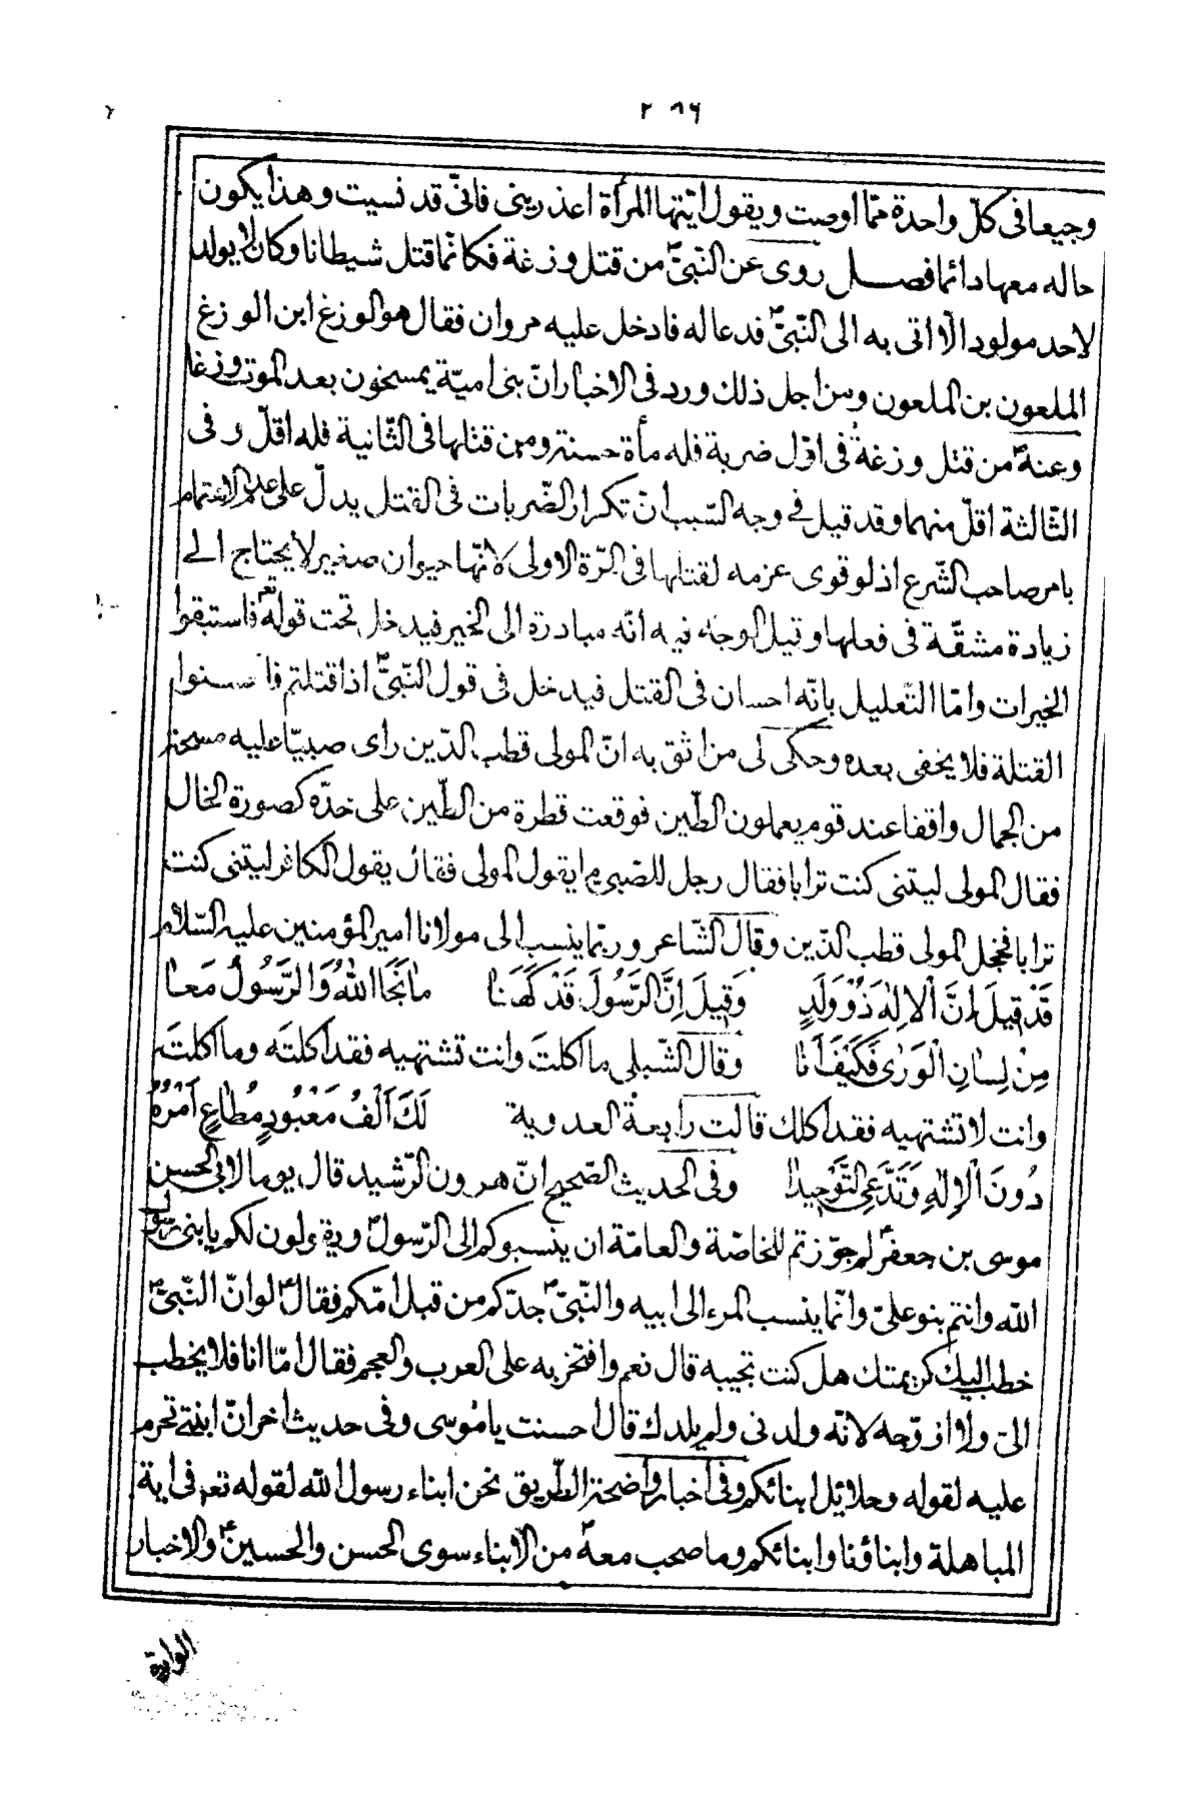 ٢٨٦
وجيعا فى كلّ واحدة ممّا اوصت ويقول ايّتها المرأة اعذرينى فانّى قد نسيت وهذا يكون
حاله معها دائما فصل روى عن النّبىّ ص من قتل وزغة فكانّما قتل شيطانا وكان لا يولد
لاحد مولود الّا اتى به الى النّبىّ ص فدعا له فادخل عليه مروان فقال هو الوزغ ابن الوزغ
الملعون بن الملعون ومن اجل ذلك ورد فى الاخبار انّ بنى اميّة يمسخون بعد الموت وزغا
وعنه ص من قتل وزغة فى اوّل ضربة فله مأة حسنة ومن قتلها فى الثّانية فله اقلّ وفى
الثّالثة اقلّ منهما وقد قيل فى وجه السّبب انّ تكرار الضّربات فى القتل يدلّ على عدم الاهتمام
بامر صاحب الشّرع اذ لو قوى عزمه لقتلها فى المرّة الاولى لانّها حيوان صغير لا يحتاج الى
زيادة مشقّة فى فعلها وقيل الوجه فيه انّه مبادرة الى الخير فيدخل تحت قوله تعم فاستبقوا
الخيرات وامّا التّعليل بانّه احسان فى القتل فيدخل فى قول النّبىّ ص اذا قتلتم فاحسنوا
القتلة فلا يخفى بعده وحكى لى من اثق به انّ المولى قطب الدّين راى صبيّا عليه مسحة
من الجمال واقفا عند قوم يعملون الطّين فوقعت قطرة من الطّين على خدّه كصورة الخال
فقال المولى ليتنى كنت ترابا فقال رجل للصّبى ما يقول المولى فقال يقول الكافر ليتنى كنت
ترابا فخجل المولى قطب الدّين وقال الشّاعر وربّما ينسب الى مولانا امير المؤمنين عليه السّلام
قَدْ قِيلَ اِنَّ الْاِلٰهَ ذُوْ وَلَدٍ وَقِيلَ اِنَّ الرَّسُولَ قَدْ كَهَنَا مَا نَجَا اللهُ وَالرَّسُولُ مَعًا
مِنْ لِسَانِ الْوَرٰى فَكَيْفَ اَنَا وقال الشّبلى ما اكلتَ وانت تشتهيه فقد اكلتَه وما اكلتَ
وانت لا تشتهيه فقد اكلك قالت رابعة العدوية لَكَ اَلْفُ مَعْبُودٍ مُطَاعٍ اَمْرُهُ
دُونَ الْاِلٰهِ وَتَدَّعِى التَّوْحِيدَا وفى الحديث الصّحيح انّ هرون الرّشيد قال يوما لابى الحسن
موسى بن جعفر ع لم جوّزتم للخاصّة والعامّة ان ينسبوكم الى الرّسول ص ويقولون لكم يا بنى رسول
الله وانتم بنو علىّ وانّما ينسب المرء الى ابيه والنّبىّ ص جدّكم من قبل امّكم فقال ع لو انّ النّبىّ ص
خطب اليك كريمتك هل كنت تجيبه قال نعم وافتخر به على العرب والعجم فقال امّا انا فلا يخطب
الىّ ولا ازوّجه لانّه ولدنى ولم يلدك قال احسنت يا مُوسى وفى حديث اخر انّ ابنتى تحرم
عليه لقوله وحلائل ابنائكم وفى اخبار واضحة الطّريق نحن ابناء رسول الله لقوله تعم فى اية
المباهلة وابناؤنا وابنائكم وما صحب معه ص من الابناء سوى الحسن والحسين ع والاخبار